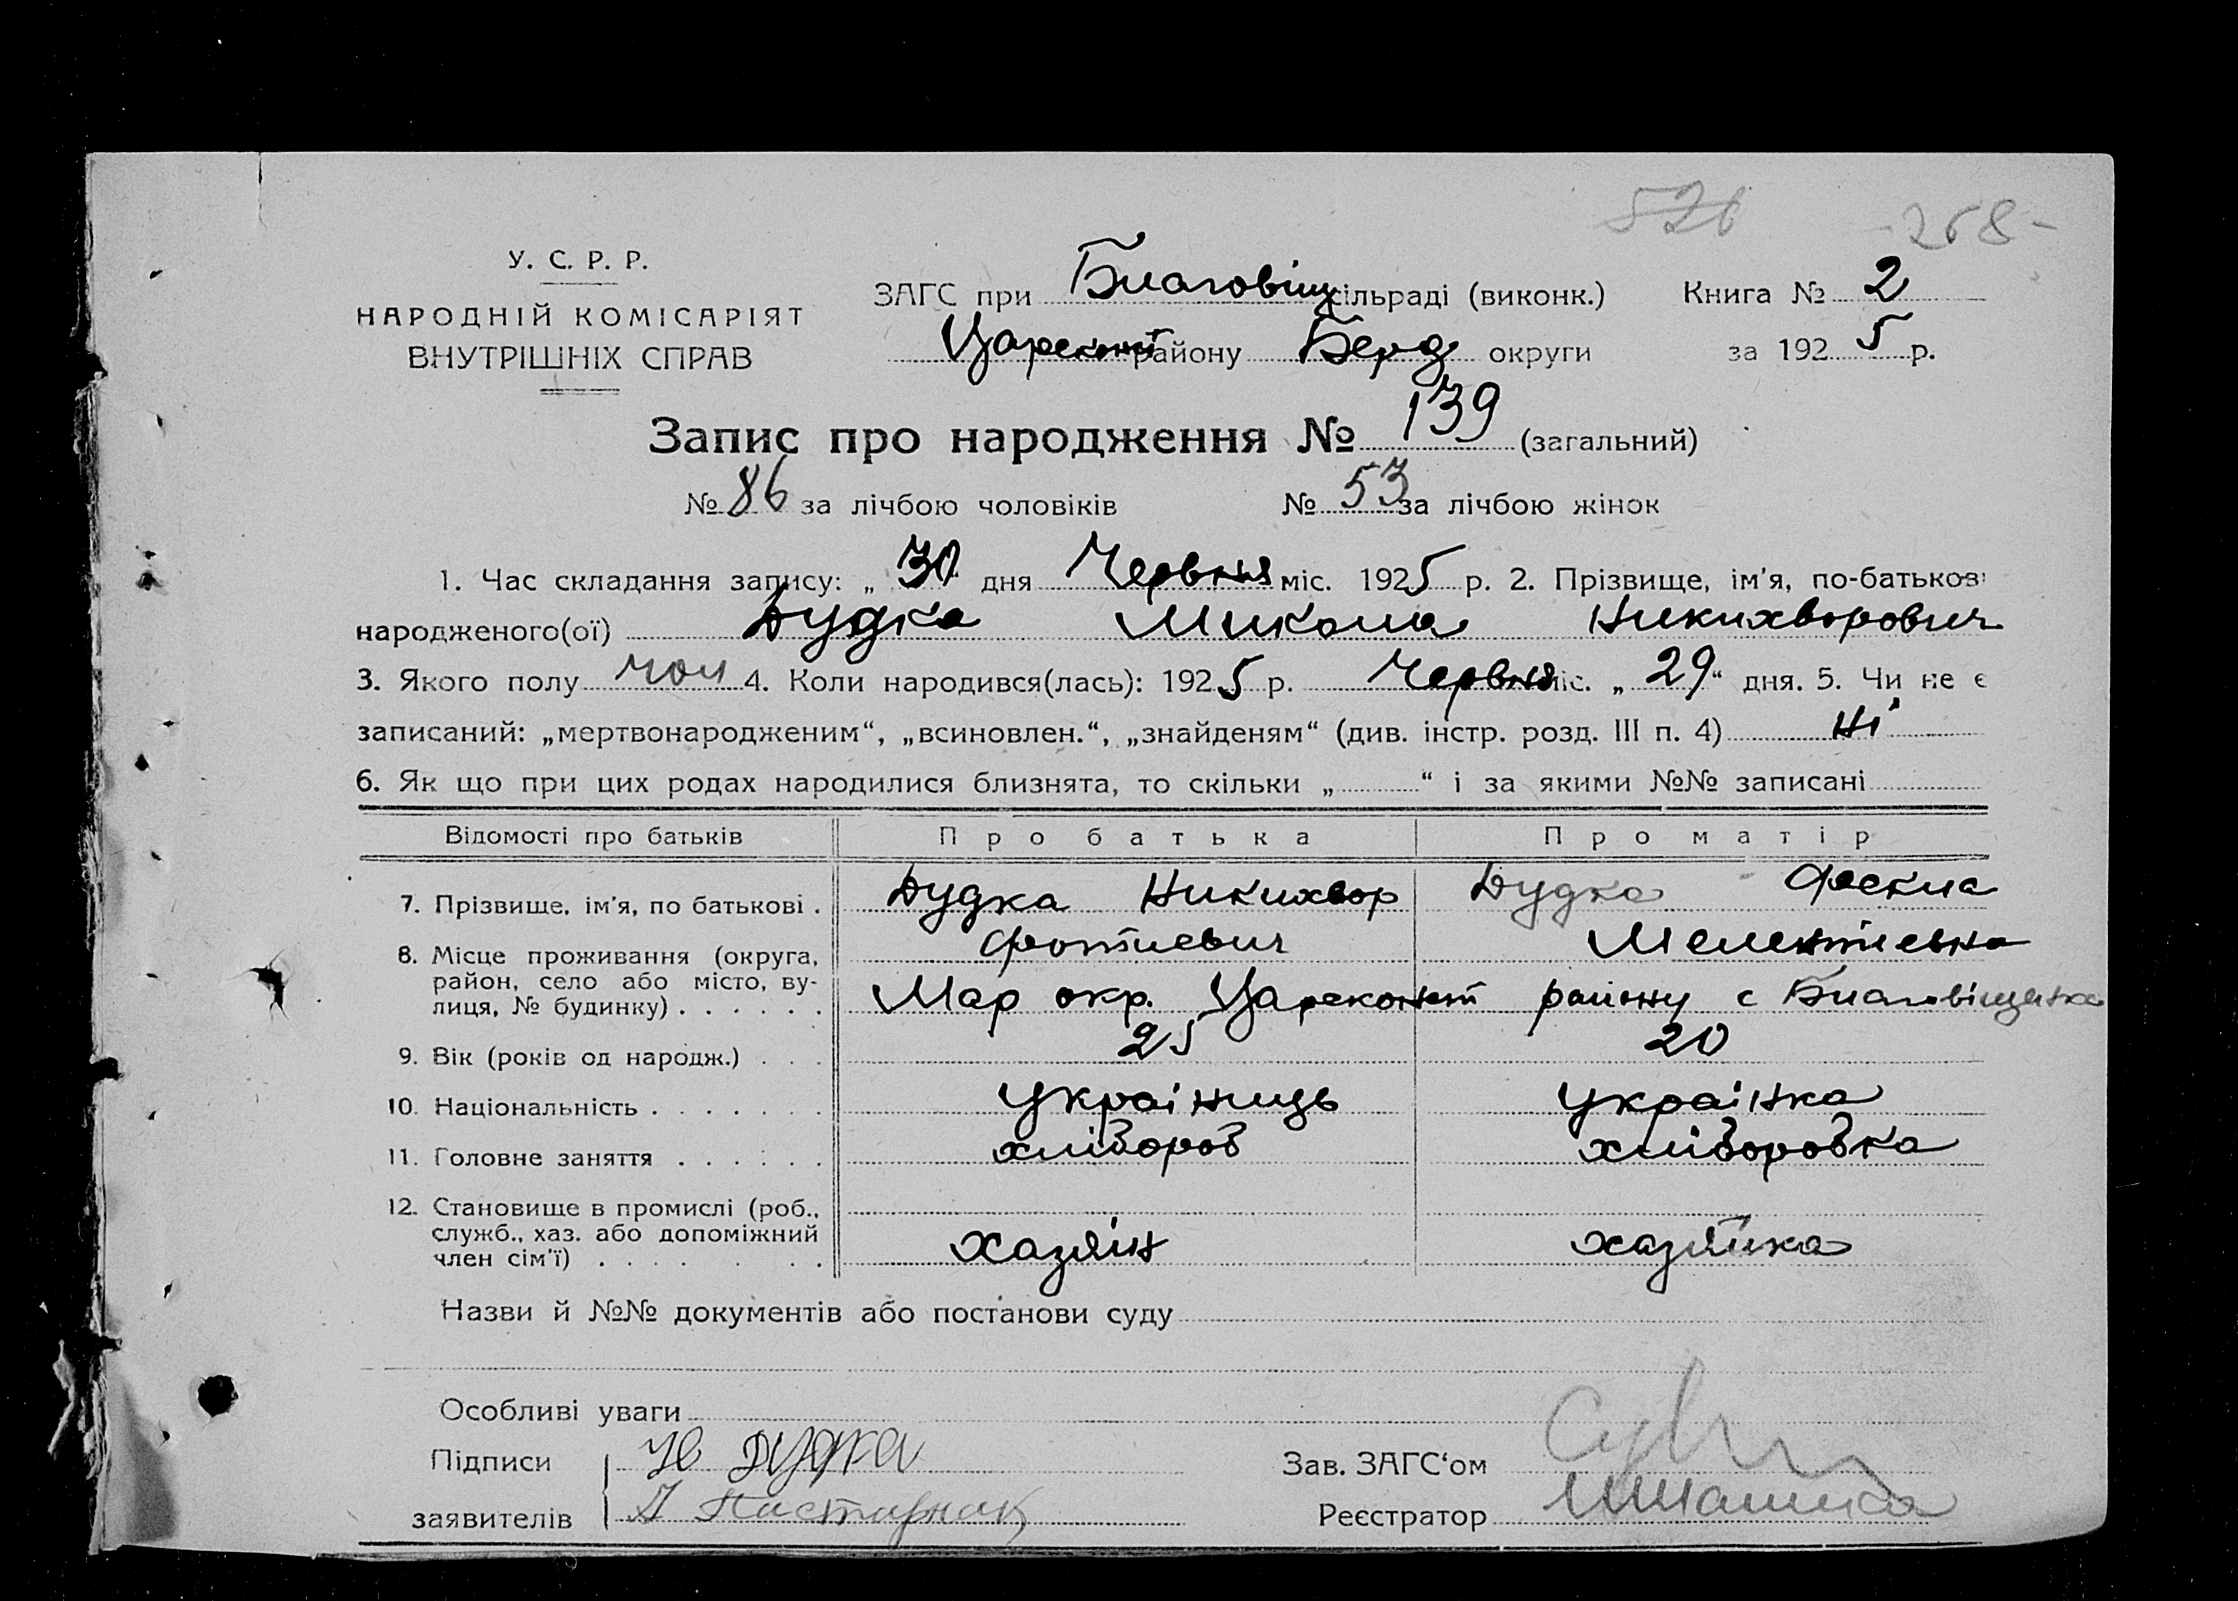 526 -268-
У. С. Р. Р.
НАРОДНІЙ КОМІСАРІЯТ
ВНУТРІШНІХ СПРАВ
ЗАГС при Благовіщ сільраді (виконк.) Книга № 2
Царекост району Берд округи за 1925 р.
Запис про народження № 139 (загальний)
№ 86 за лічбою чоловіків № 53 за лічбою жінок
1. Час складання запису: „ 30 дня Червня міс. 1925 р. 2. Прізвище, ім'я, по-батьков
народженого(ої) Дудка Микола Никихворович
3. Якого полу чол 4. Коли народився(лась): 1925 р. Червня міс. „ 29 “ дня. 5. Чи не є
записаний: „мертвонародженим“, „всиновлен.“, „знайденям“ (див. інстр. розд. III п. 4) ні
6. Як що при цих родах народилися близнята, то скільки „ “ і за якими №№ записані
Відомості про батьків Про батька Про матір
7. Прізвище, ім'я, по батькові . Дудка Никихвор Дудка Фекла
Фотиевич Мелентиевна
8. Місце проживання (округа,
район, село або місто, ву-
лиця, № будинку) . . . . . . Мар окр. Царекост району с Благовіщинка
9. Вік (років од народж.) . . . 25 20
10. Національність . . . . . . . Украіниць Украінка
11. Головне заняття . . . . . . хлібороб хліборобка
12. Становище в промислі (роб.,
служб., хаз. або допоміжний
член сім'ї) . . . . . . . хазяїн хазяйка
Назви й №№ документів або постанови суду
Особливі уваги
Підписи Н Дудка Зав. ЗАГС‘ом
заявителів Пастарнак Реєстратор